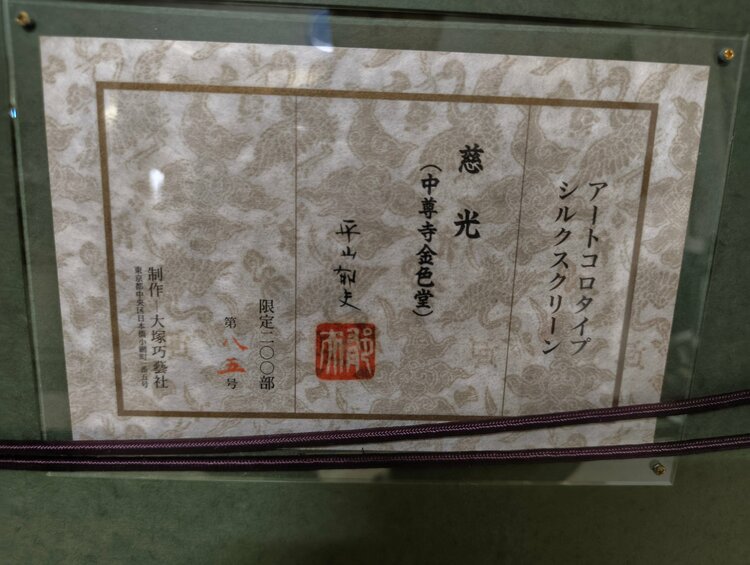 アートコロタイプ
シルクスクリーン
慈光
（中尊寺金色堂）
平山郁夫
限定二〇〇部
第八五号
制作－大塚巧藝社
東京都中央区日本橋小網町